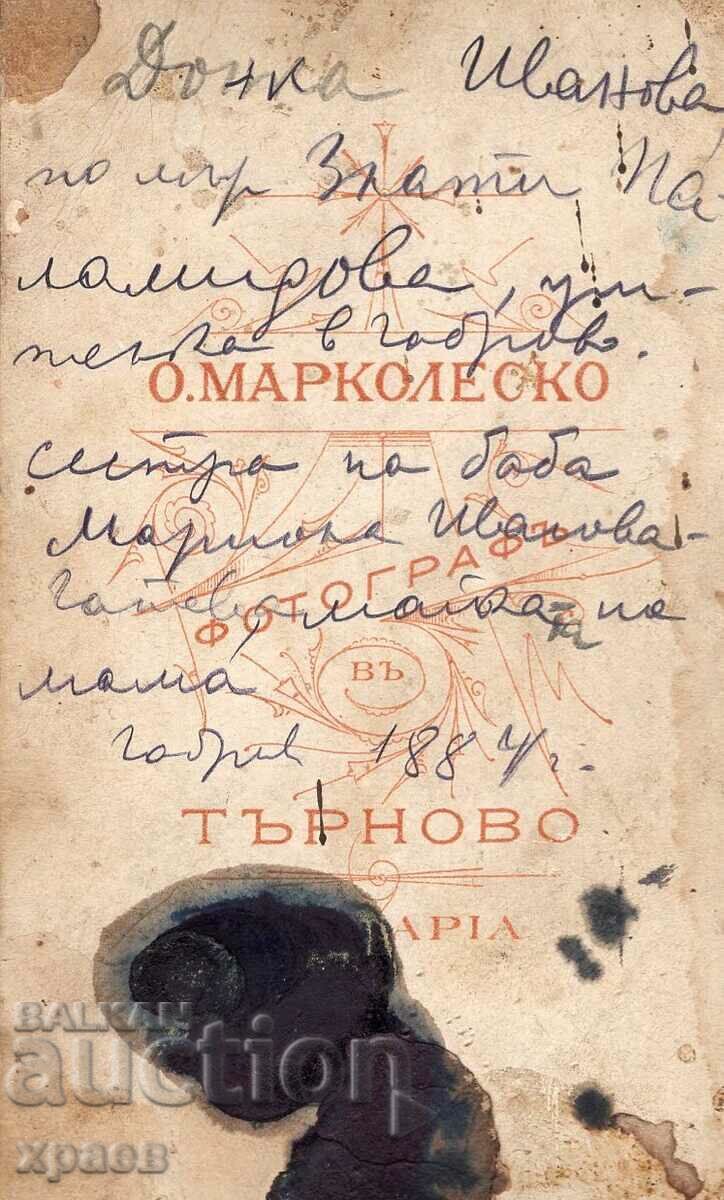 Донка Иванова
по мъж Злати Па
ламидова, учи-
телка в Габрово.
О. МАРКОЛЕСКО
сестра на баба
Мариола Иванова-
Гатева, майка та на
ФОТОГРАФЪ
мама,
ВЪ
Габрово 1884 г.
ТЪРНОВО
АРІА
BALKAN
auction
храсв